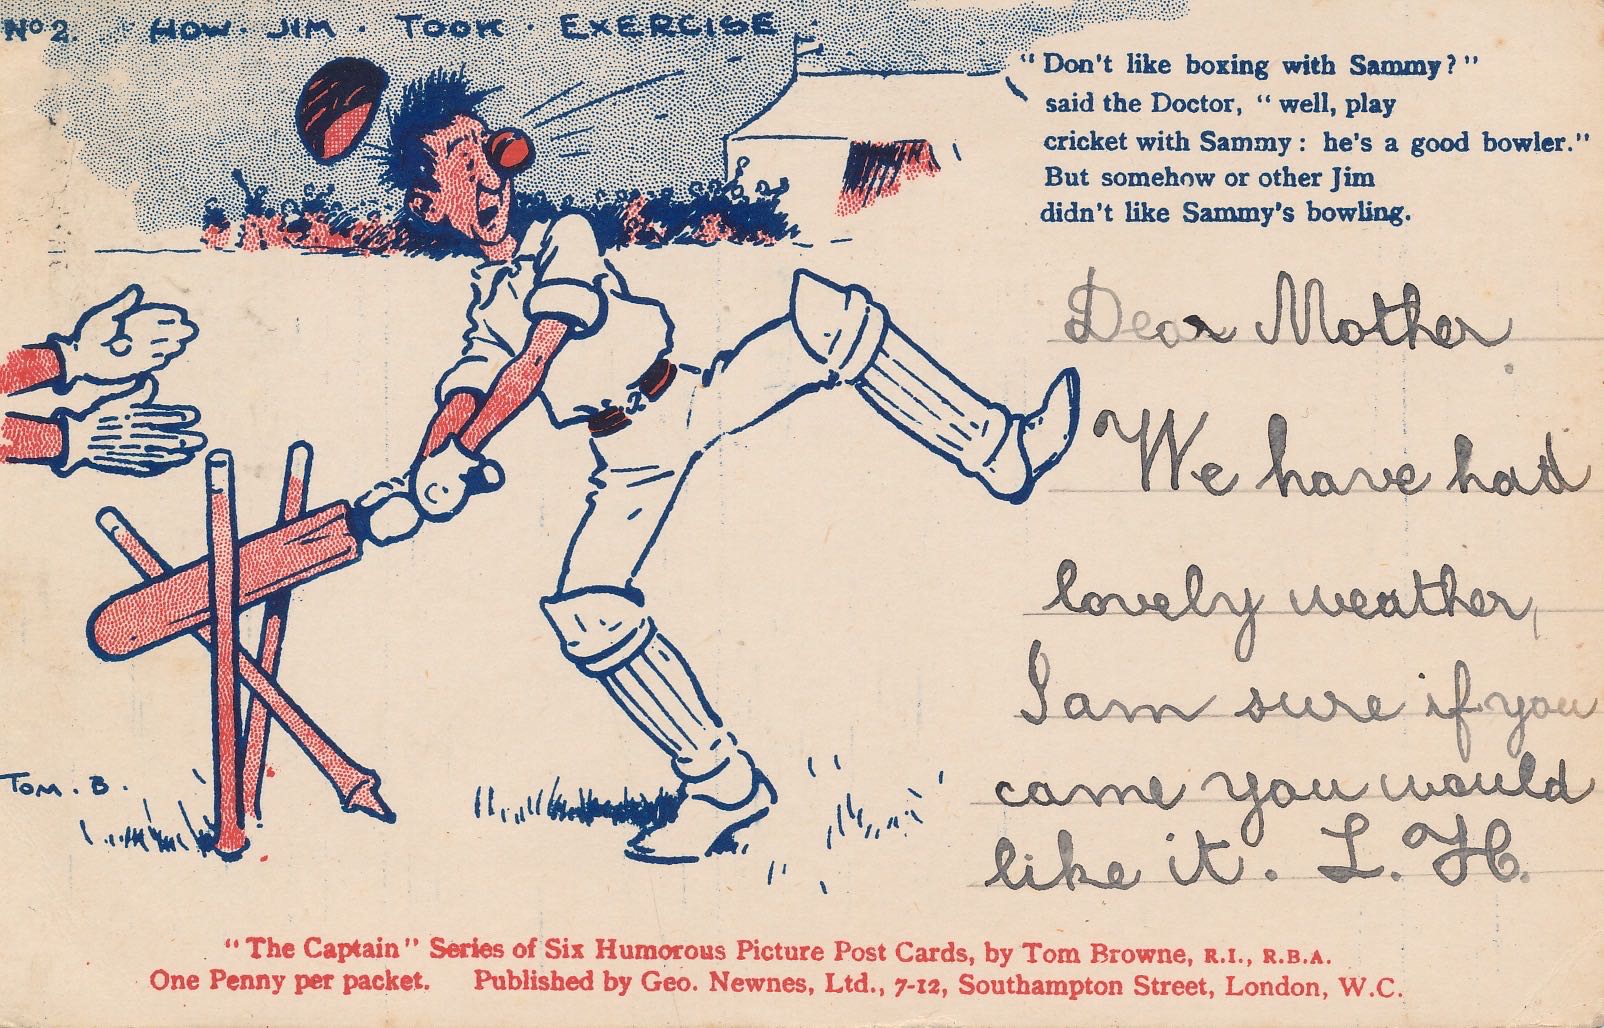 No 2. HOW · JIM · TOOK · EXERCISE ·
"Don't like boxing with Sammy?"
said the Doctor, "well, play
cricket with Sammy: he's a good bowler."
But somehow or other Jim
didn't like Sammy's bowling.
Dear Mother
We have had
lovely weather,
I am sure if you
came you would
like it. L. H.
TOM. B.
"The Captain" Series of Six Humorous Picture Post Cards, by Tom Browne, R.I., R.B.A.
One Penny per packet. Published by Geo. Newnes, Ltd., 7-12, Southampton Street, London, W.C.